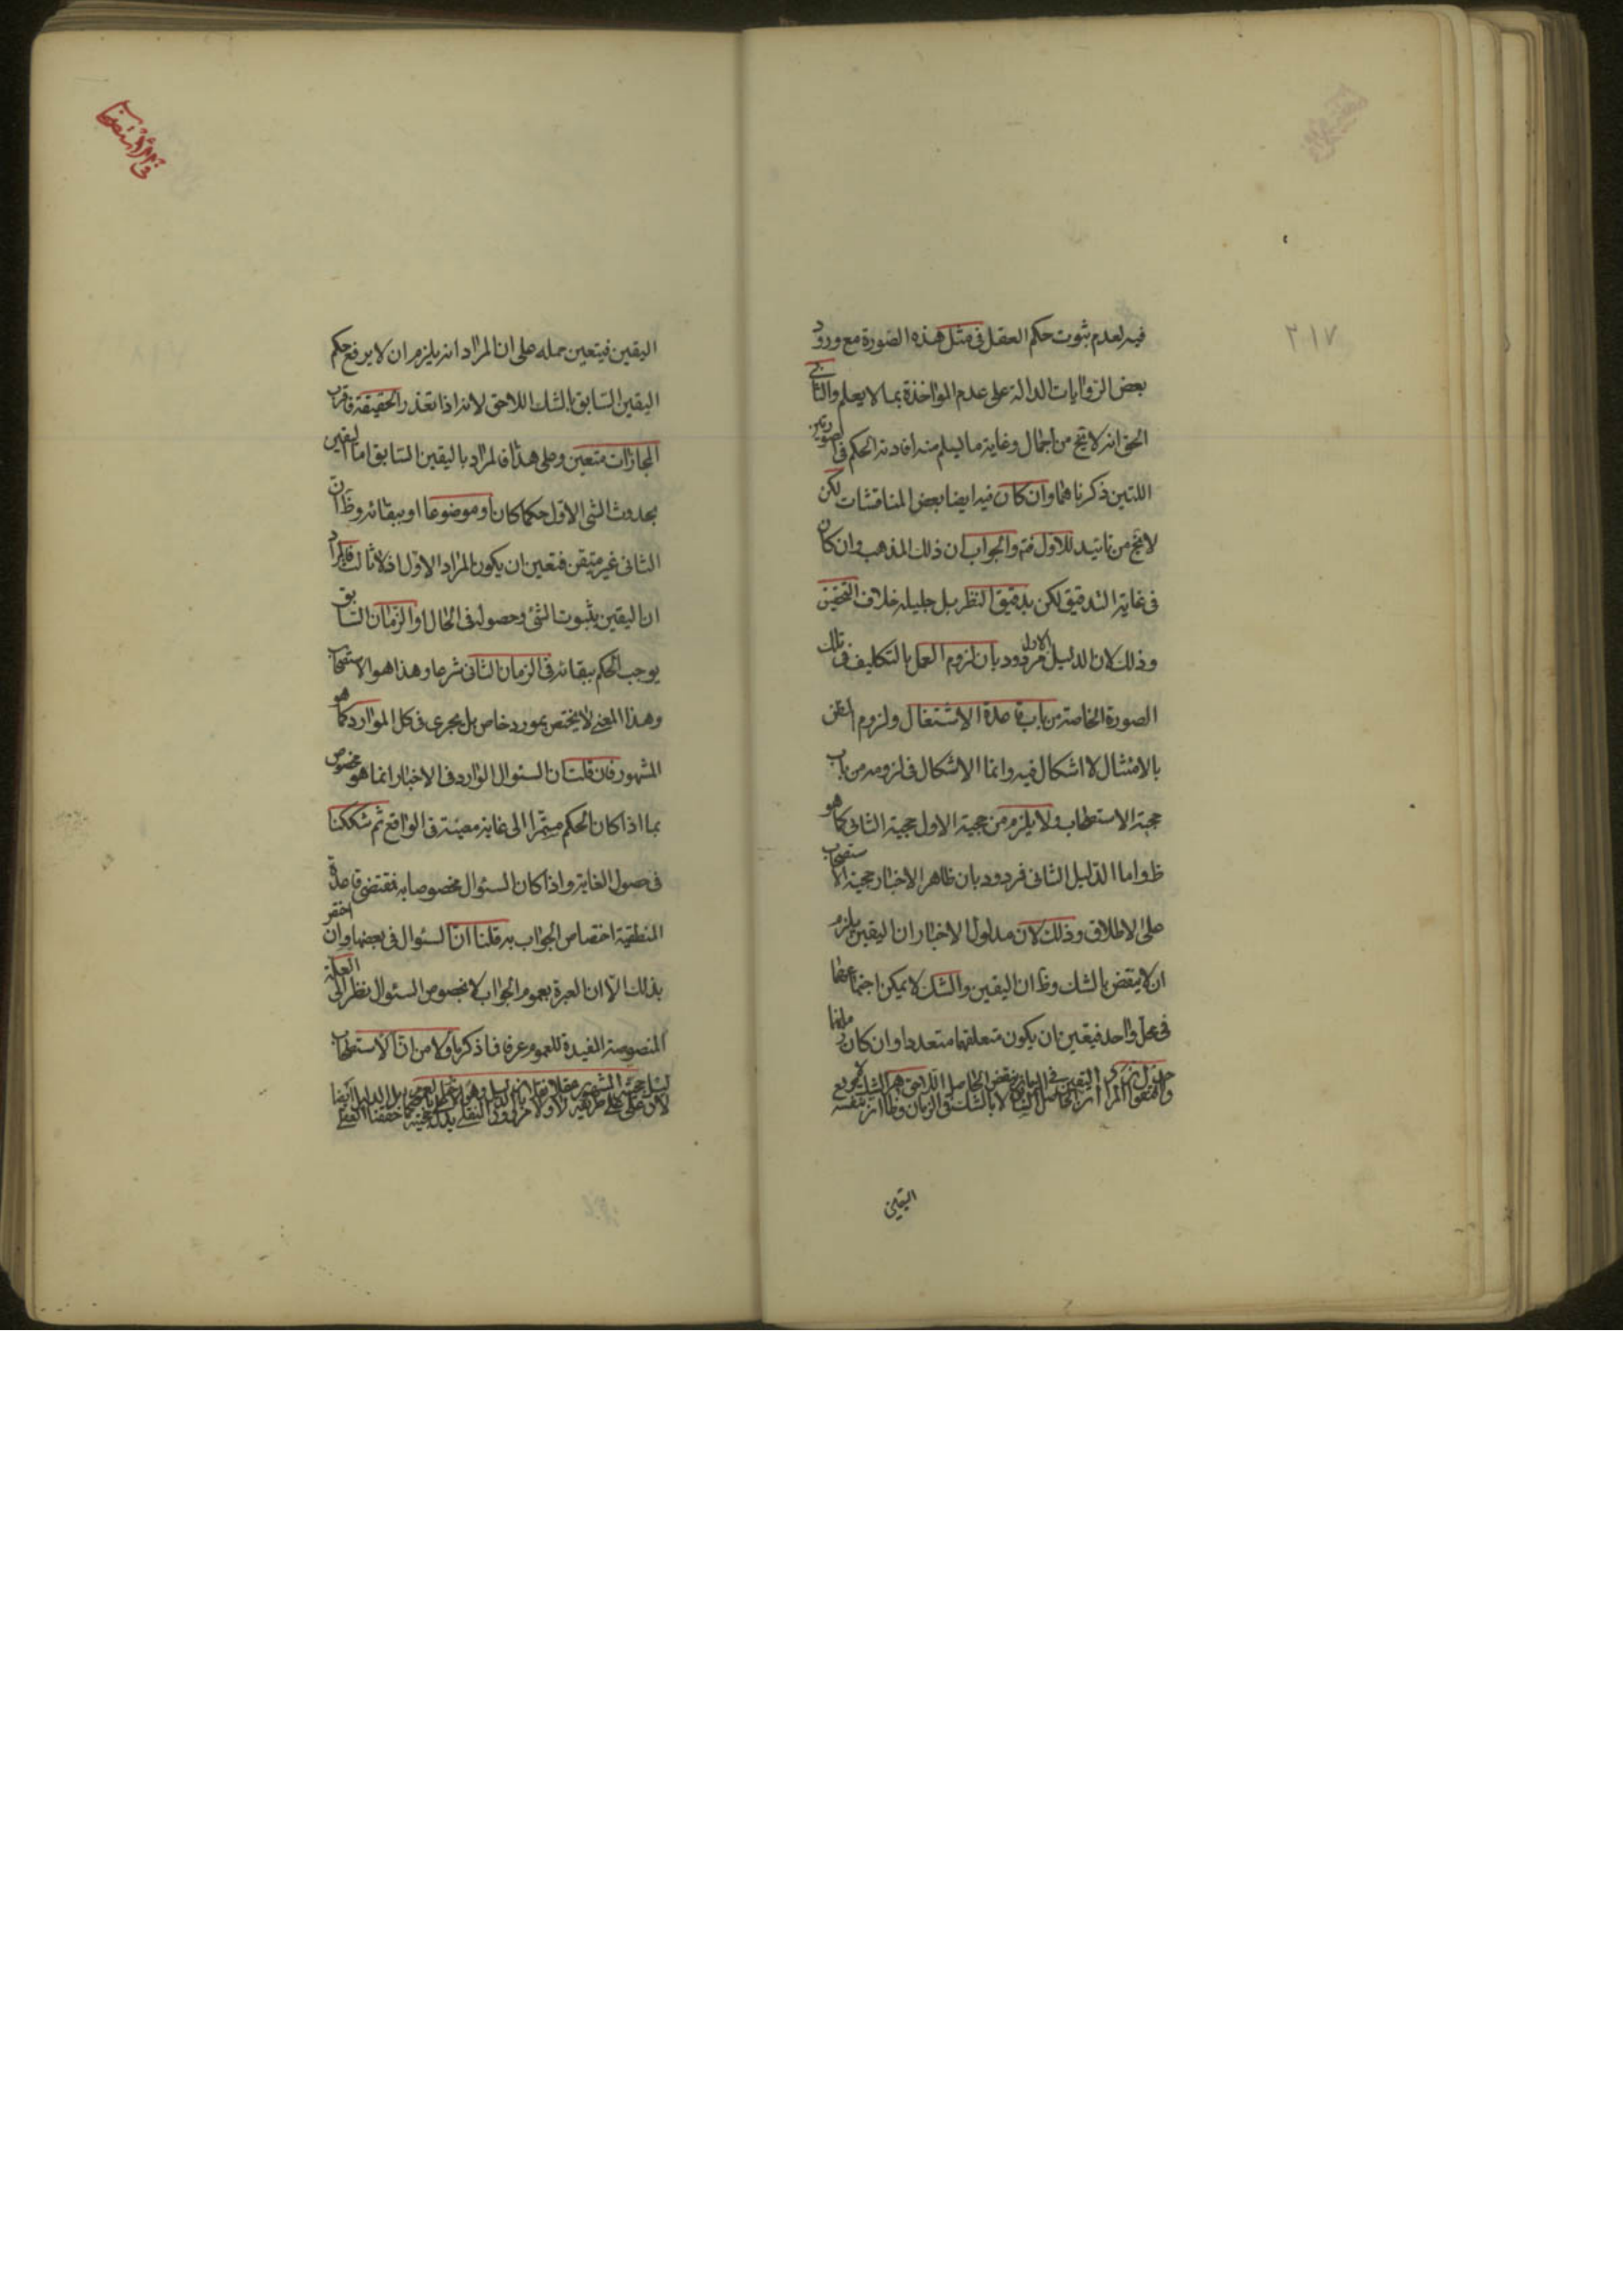 ٢١٧
فيه لعدم ثبوت حكم العقل فى مثل هذه الصورة مع ورود
بعض الروايات الدالة على عدم المؤاخذة بما لا يعلم والثانى
الحق انه لا يخ من اجمال وغاية ما يسلم منه افادته الحكم فى الصورتين
اللتين ذكرناهما وان كان فيه ايضا بعض المناقشات لكن
لا يخ من تائيد للاول فتم والجواب ان ذلك المذهب وان كان
فى غاية التدقيق لكن بدقيق النظر بل جليله خلاف التحقيق
وذلك لان الدليل الاول مردود بان لزوم العمل بالتكليف فى تلك
الصورة الخاصة من باب قاعدة الاشتغال ولزوم
بالامتثال لا اشكال فيه وانما الاشكال فى لزومه من باب
حجية الاستصحاب ولا يلزم من حجية الاول حجية الثانى كما هو
ظ واما الدليل الثانى فمردود بان ظاهر الاخبار حجية الاستصحاب
على الاطلاق وذلك لان مدلول الاخبار ان اليقين يلزم
ان لا ينقض بالشك وظ ان اليقين والشك لا يمكن اجتماعهما
فى محل واحد فيتعين ان يكون متعلقهما متعددا وان كان
اليقين
فى الاستصحاب
اليقين فيتعين حمله على ان المراد انه يلزم ان لا يرفع حكم
اليقين السابق بالشك اللاحق لانه اذا تعذر الحقيقة فاقرب
المجازات متعين وعلى هذا فالمراد باليقين السابق اما اليقين
بحدوث الشئ الاول حكما كان او موضوعا او ببقائه وظ ان
الثانى غير متيقن فتعين ان يكون المراد الاول اذ لا ثالث فالمراد
ان اليقين بثبوت الشئ وحصوله فى الحال او الزمان السابق
يوجب الحكم ببقائه فى الزمان الثانى شرعا وهذا هو الاستصحاب
وهذا المعنى لا يختص بمورد خاص بل يجرى فى كل الموارد كما هو
المشهور فان قلت ان السئوال الوارد فى الاخبار انما هو مخصوص
بما اذا كان الحكم مستمرا الى غاية معينة فى الواقع ثم شككنا
فى حصول الغاية واذا كان السئوال مخصوصا به فمقتضى قاعدة
المنطقية اختصاص الجواب به قلنا ان السئوال فى بعضها وان اختص
بذلك الا ان العبرة بعموم الجواب لا بخصوص السئوال نظرا الى العلة
المنصوصة المفيدة للعموم عرفا فما ذكره اولا من ان الاستصحاب